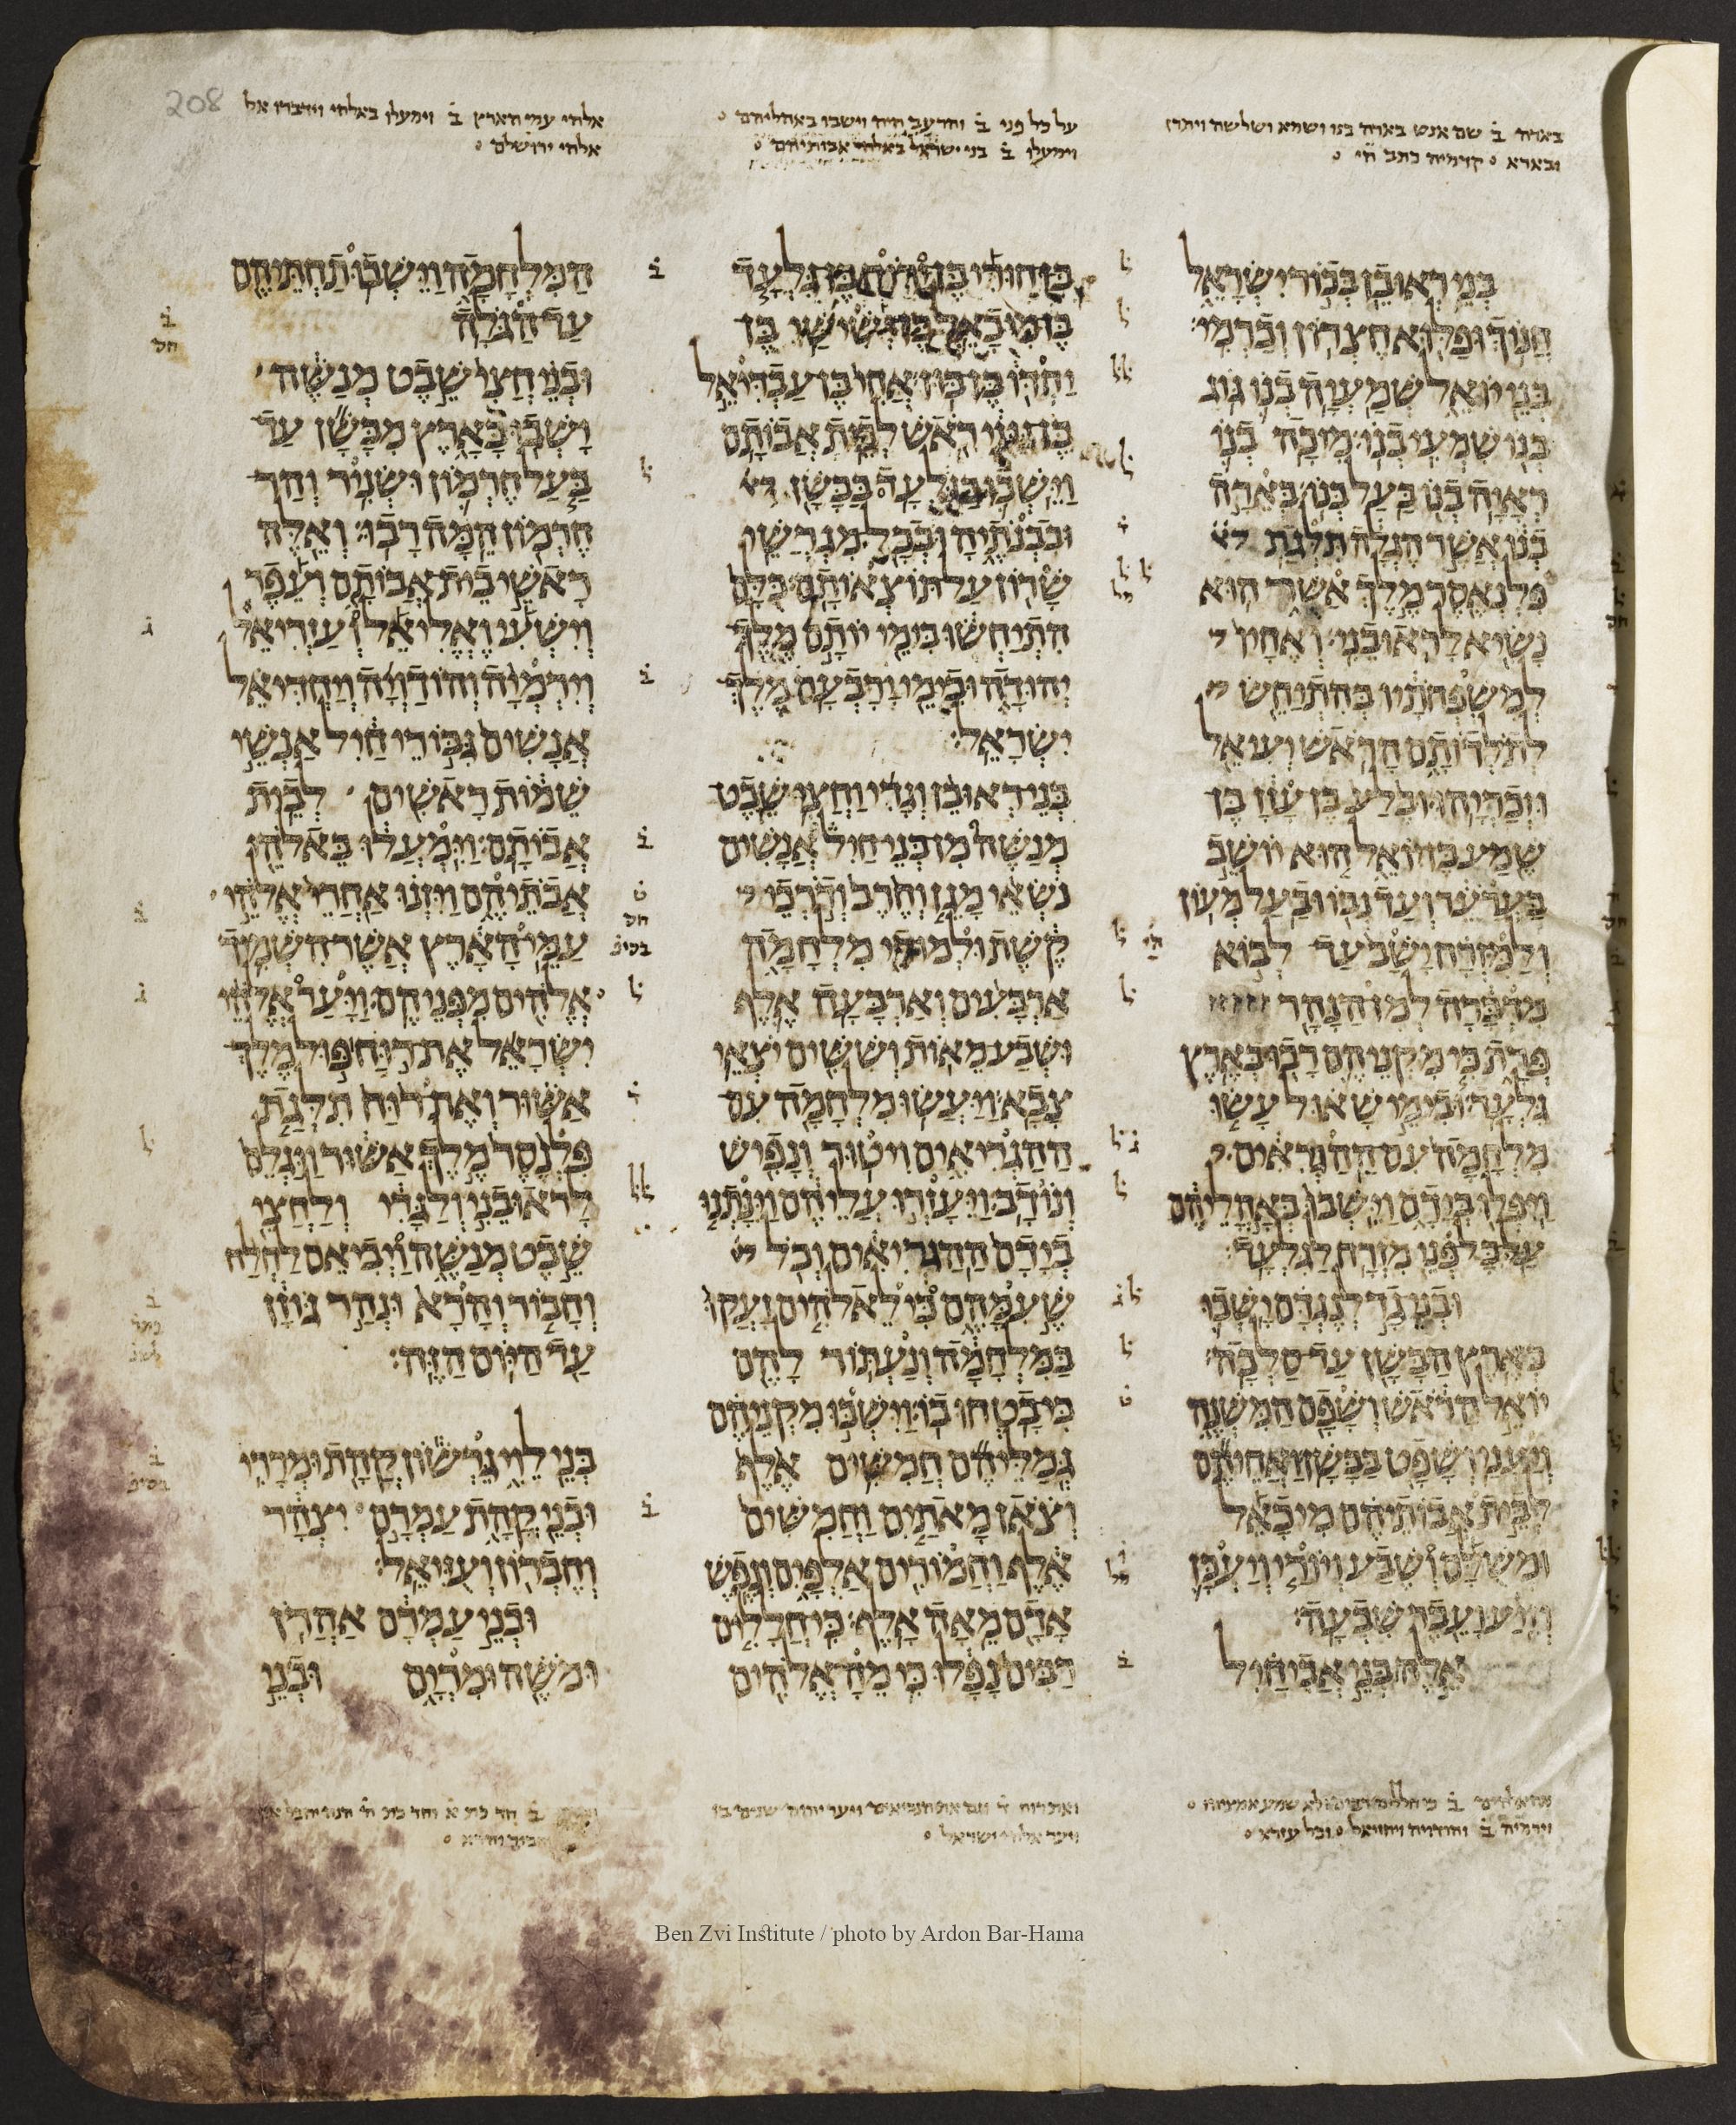 באדה ב֗ שם אנש באדה בנו ושמא ושלשה ויתרן
ובארא ׃ קדמיה כתב חי
על כל פני ב֗ וחרעב חיה וישבו באהליהם
וימעלו ב֗ בני ישראל באלהי אבותיהם
אלהי עמי הארץ ב֗ וימעלו באלהי וידברו אל
אלהי ירושלם
בני ראובן בכור ישראל
חנוך ופלוא חצרון וכרמי׃
בני יואל שמעיה בנו גוג
בנו שמעי בנו׃ מיכה בנו
ראיה בנו בעל בנו׃ בארה
בנו אשר הגלה תלגת
פלנאסר מלך אשר הוא
נשיא לראובני׃ ואחיו
למשפחתיו בהתיחש
לתלדותם הראש יעיאל
וזכריהו׃ ובלע בן עזז בן
שמע בן יואל הוא יושב
בערער ועד נבו ובעל מעון׃
ולמזרח ישב עד לבוא
מדברה למן הנהר
פרת כי מקניהם רבו בארץ
גלעד׃ ובימי שאול עשו
מלחמה עם ההגראים
ויפלו בידם וישבו באהליהם
על כל פני מזרח לגלעד׃
ובני גד לנגדם ישבו
בארץ הבשן עד סלכה׃
יואל הראש ושפם המשנה
ויעני ושפט בבשן׃ ואחיהם
לבית אבותיהם מיכאל
ומשלם ושבע ויורי ויעכן
וזיע ועבר שבעה׃
אלה בני אביחיל
בן חורי בן ירוח בן גלעד
בן מיכאל בן ישישי בן
יחדו בן בוז׃ אחי בן עבדיאל
בן גוני ראש לבית אבותם׃
וישבו בגלעד בבשן
ובבנתיה ובכל מגרשי
שרון על תוצאותם׃ כלם
התיחשו בימי יותם מלך
יהודה ובימי ירבעם מלך
ישראל׃
בני ראובן וגדי וחצי שבט
מנשה מן בני חיל אנשים
נשאי מגן וחרב ודרכי
קשת ולמודי מלחמה
ארבעים וארבעה אלף
ושבע מאות וששים יצאי
צבא׃ ויעשו מלחמה עם
ההגריאים ויטור ונפיש
ונודב׃ ויעזרו עליהם וינתנו
בידם ההגריאים וכל
שעמהם כי לאלהים זעקו
במלחמה ונעתור להם
כי בטחו בו׃ וישבו מקניהם
גמליהם חמשים אלף
וצאן מאתים וחמשים
אלף וחמורים אלפים ונפש
אדם מאה אלף׃ כי חללים
רבים נפלו כי מהאלהים
המלחמה וישבו תחתיהם
עד הגלה׃
ובני חצי שבט מנשה
ישבו בארץ מבשן עד
בעל חרמון ושניר והר
חרמון המה רבו׃ ואלה
ראשי בית אבותם ועפר
וישעי ואליאל ועזריאל
וירמיה והודויה ויחדיאל
אנשים גבורי חיל אנשי
שמות ראשים לבית
אבותם׃ וימעלו באלהי
אבתיהם ויזנו אחרי אלהי
עמי הארץ אשר השמיד
אלהים מפניהם׃ ויער אלהי
ישראל את רוח פול מלך
אשור ואת רוח תלגת
פלנסר מלך אשור ויגלם
לראובני ולגדי ולחצי
שבט מנשה ויביאם לחלח
וחבור והרא ונהר גוזן
עד היום הזה׃
בני לוי גרשון קהת ומררי׃
ובני קהת עמרם יצהר
וחברון ועזיאל׃
ובני עמרם אהרן
ומשה ומרים ובני
מהאלהים ב֗ כי חללים רבים ולא שמע אמציהו
וירמיה ב֗ והודויה ויחדיאל וכל עזרא
ואת רוח
ויער אלהי ישראל
208
Ben Zvi Institute / photo by Ardon Bar-Hama